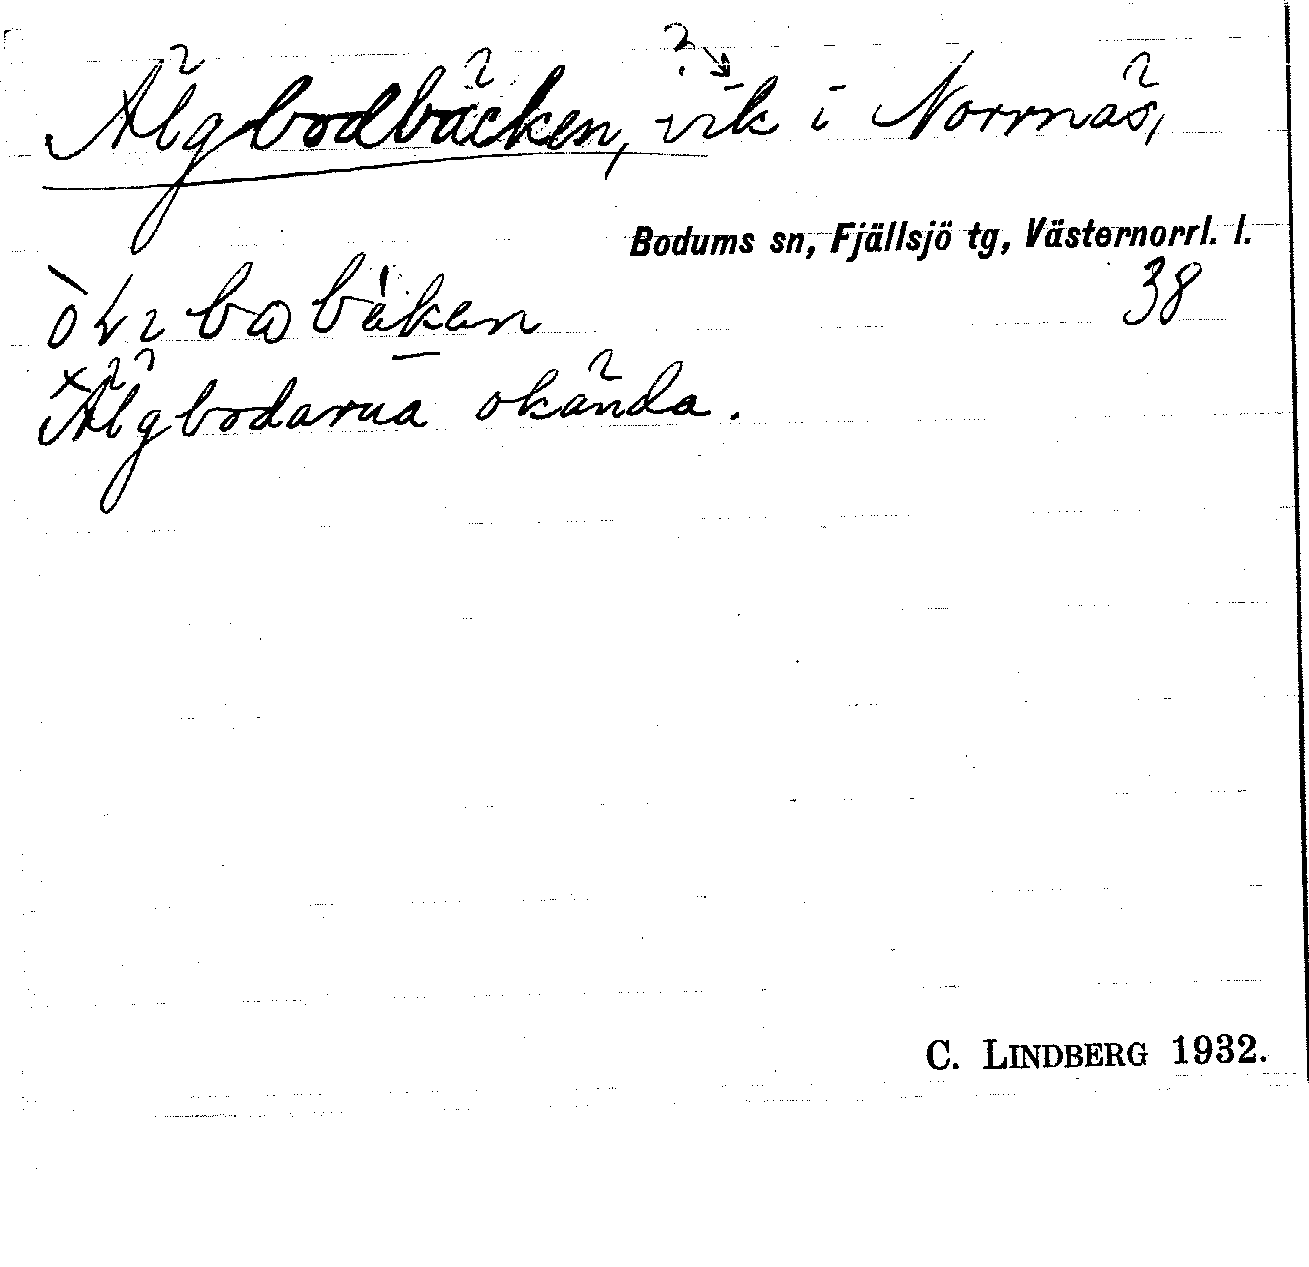 ?
Älgbodbäcken, vik i Norrnäs,
Bodums sn, Fjällsjö tg, Västernorrl. l.
38
×Älgbodarna okända.
C. LINDBERG 1932.